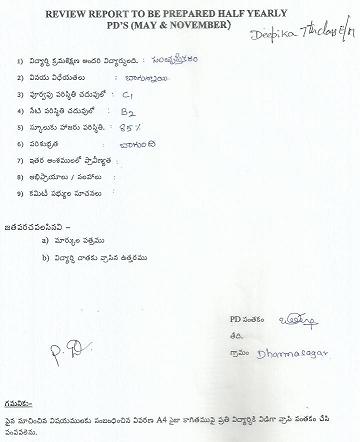 REVIEW REPORT TO BE PREPARED HALF YEARLY
PD'S (MAY & NOVEMBER)
Deepika
1) విద్యార్థి క్రమశిక్షణ అందరి విద్యార్థులది. :
2) విషయ విధేయతలు :
3) పూర్వపు పరిస్థితి చదువులో : C1
4) నేటి పరిస్థితి చదువులో : B2
5) స్కూలుకు హాజరు పరిస్థితి. : 85%
6) పరిశుభ్రత : బాగుంది
7) ఇతర అంశములలో ప్రావీణ్యత :
8) అభిప్రాయాలు / సలహాలు :
9) కమిటీ సభ్యుల సూచనలు :
జతపరచవలసినవి –
a) మార్కుల పత్రము
b) విద్యార్థి దాతకు వ్రాసిన ఉత్తరము
PD సంతకం
తేది.
గ్రామం Dharmasagar
P.D.
గమనిక:-
పైన సూచించిన విషయములకు సంబంధించిన వివరణ A4 సైజు కాగితముపై ప్రతి విద్యార్థికి విడిగా వ్రాసి సంతకం చేసి
పంపవలెను.